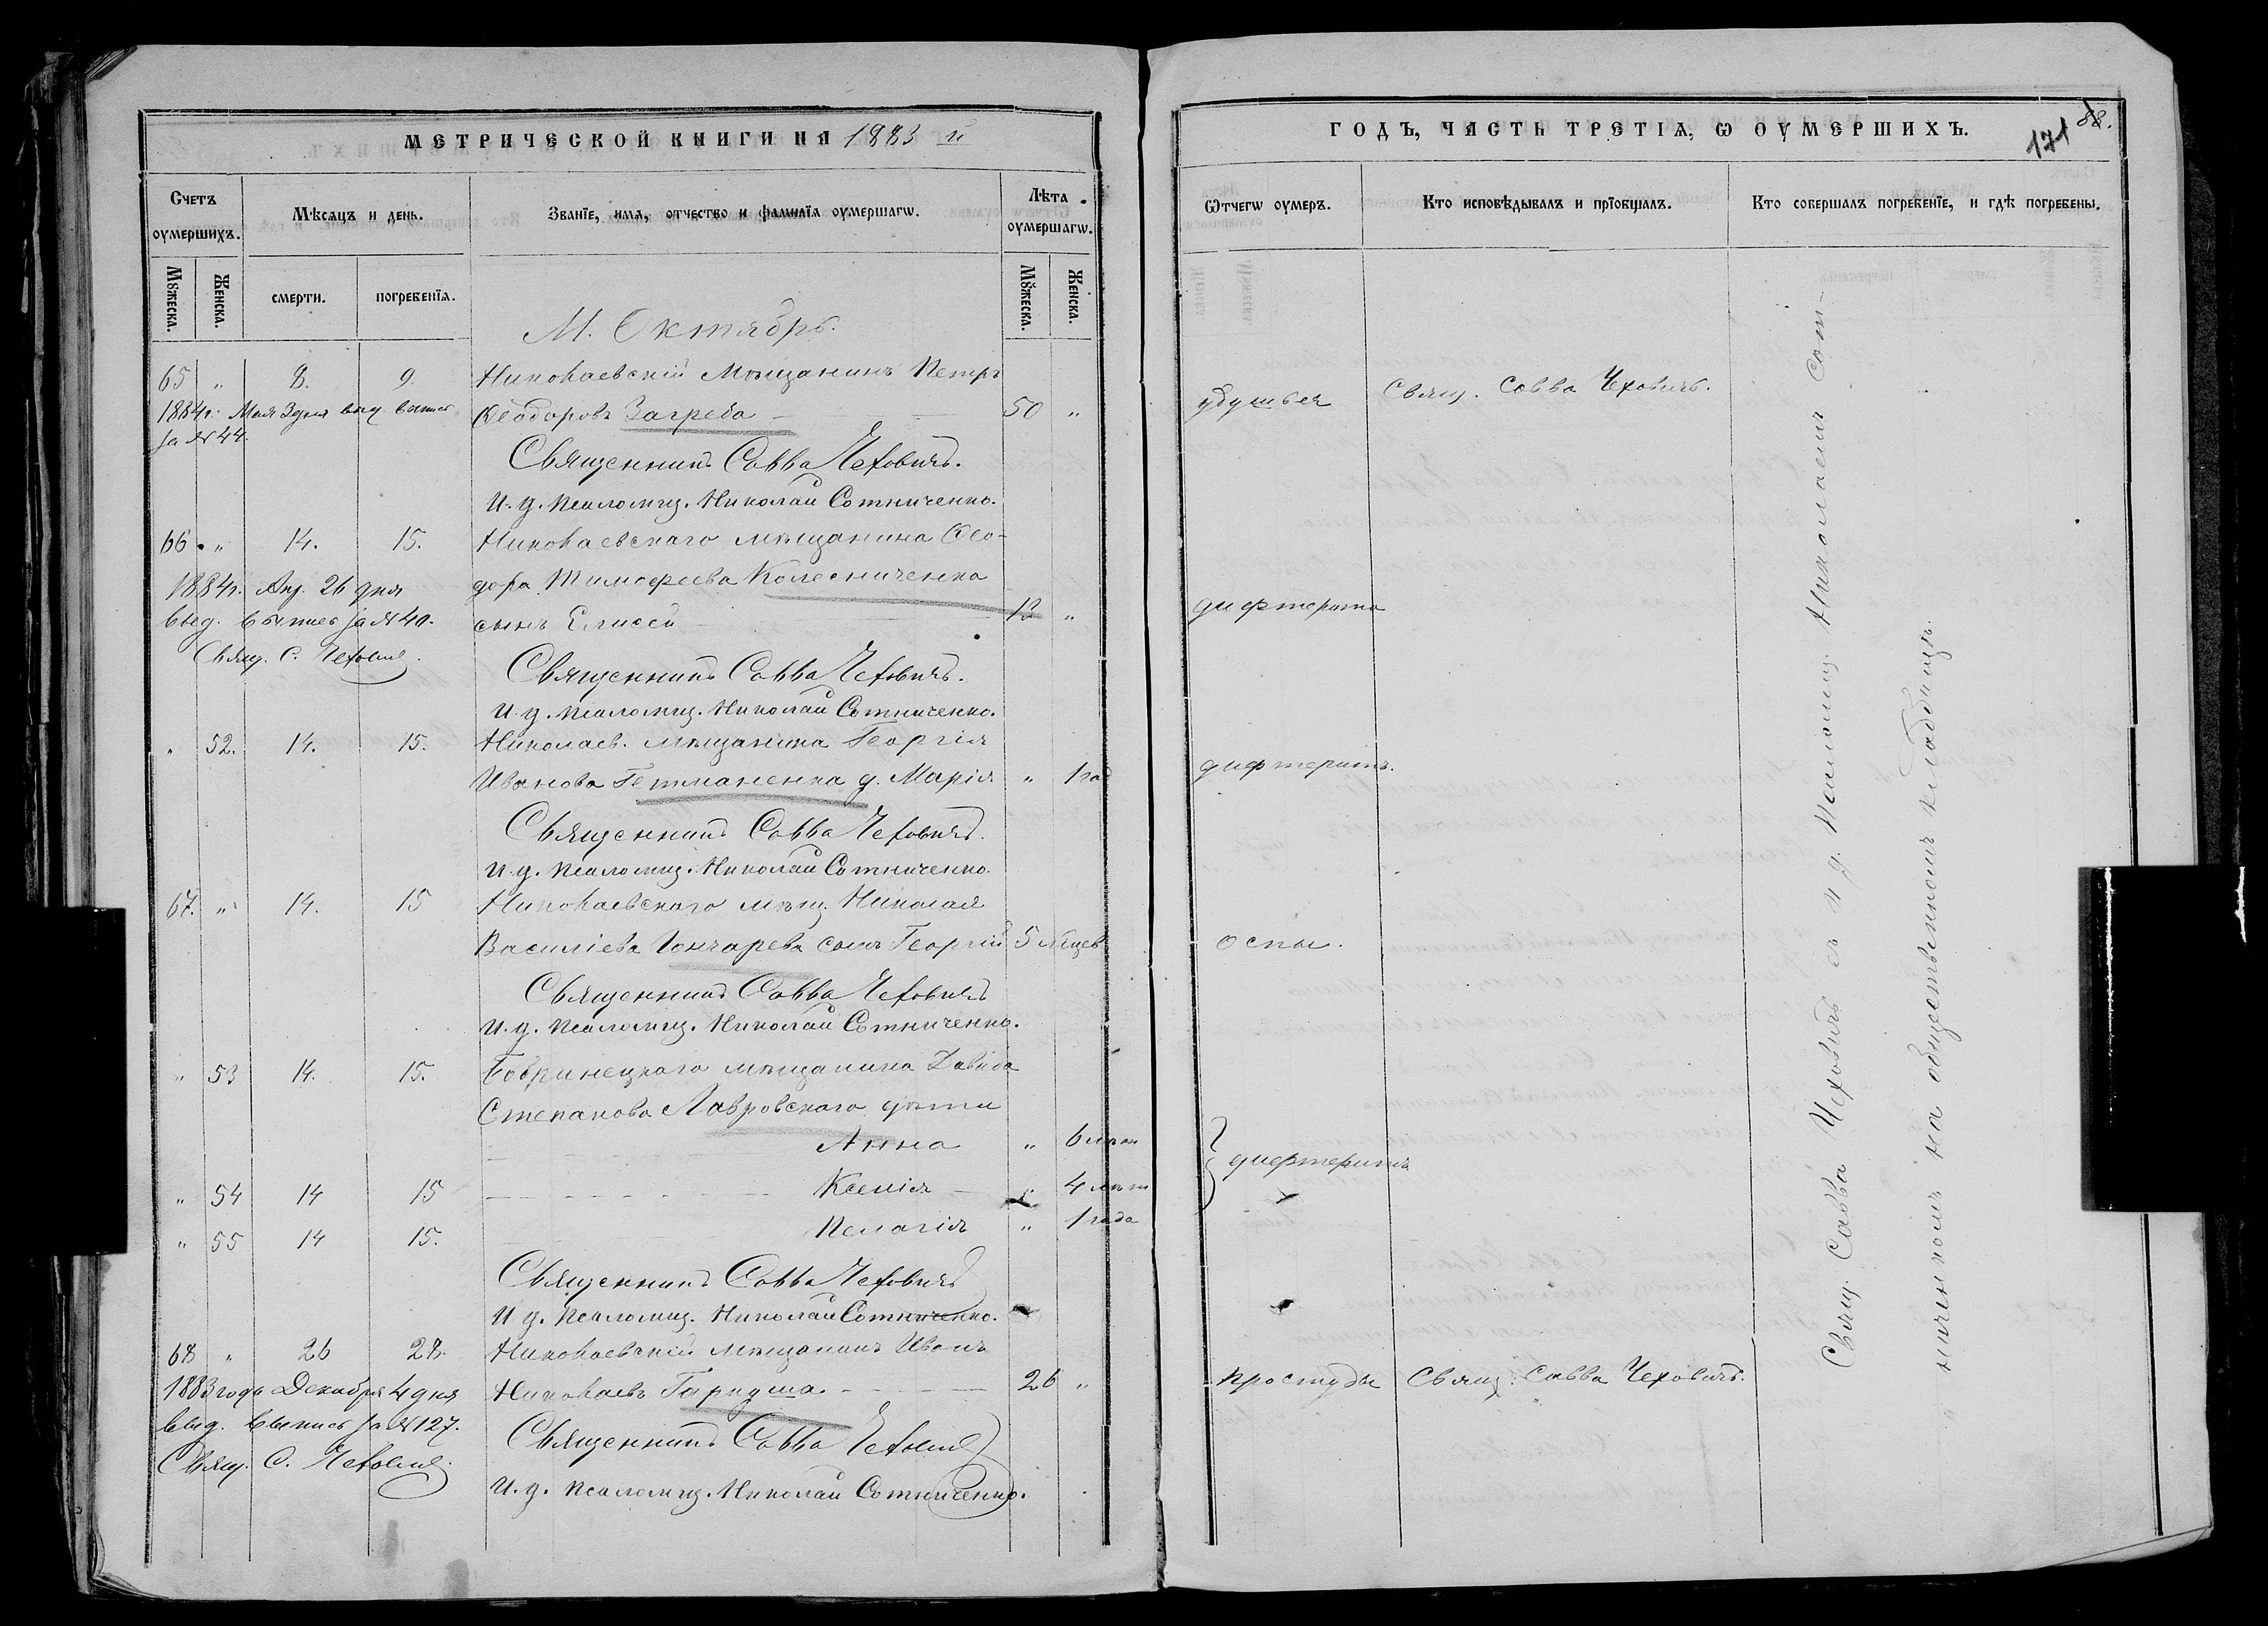 МЕТРИЧЕСКОЙ КНИГИ НА 1883 й
Счетъ оумершихъ.
Мѣсяцъ и день.
Званїе, имя, отчество и фамилїя оумершагѡ.
Лѣта оумершагѡ.
Мꙋжеска.
Женска.
смерти.
погребенїя.
Мꙋжеска.
Женска.
М. Октябрь.
65 " 8. 9. Николаевскій Мѣщанинъ Петръ
1884 г. Мая 3 дня выд выпись Ѳеодоровъ Загреба 50 "
за № 44.
Священникъ Савва Чеховичъ.
И. д. псаломщ. Николай Сотниченко.
66 " 14. 15. Николаевскаго мѣщанина Ѳео-
1884 г. Апр. 26 дня дора Тимофеева Колесниченка
выд. выпись за № 40. сынъ Елисей 12 "
Свящ. С. Чеховичъ.
Священникъ Савва Чеховичъ.
И. д. псаломщ. Николай Сотниченко.
" 52. 14. 15. Николаев. мѣщанина Георгія
Иванова Гетманенка д. Марія " 1 год
Священникъ Савва Чеховичъ.
И. д. псаломщ. Николай Сотниченко.
67. " 14. 15 Николаевскаго мѣщ. Николая
Василіева Гончарева сынъ Георгій 5 мѣцев
Священникъ Савва Чеховичъ
И. д. псаломщ. Николай Сотниченко.
" 53 14. 15. Бобринецкаго мѣщанина Давида
Степанова Лавровскаго дѣти
Анна " 6 лѣт
" 54 14 15 Ксенія " 4 лѣт
" 55 14 15. Пелагія " 1 года
Священникъ Савва Чеховичъ
И д. псаломщ. Николай Сотниченко.
68 " 26 28. Николаевскій мѣщанинъ Иванъ
1883 года Декабря 4 дня Николаевъ Гаркуша 26 "
выд. выпись за № 127.
Свящ. С. Чеховичъ.
Священникъ Савва Чеховичъ
И. д. псаломщ. Николай Сотниченко.
ГОДЪ, ЧАСТЬ ТРЕТІЯ, Ѡ ОУМЕРШИХЪ.
171 88.
Ѿчегѡ оумеръ.
Кто исповѣдывалъ и прїобщалъ.
Кто совершалъ погребенїе, и гдѣ погребены.
удушья Свящ. Савва Чеховичъ.
дифтерита
дифтеритъ.
оспы.
дифтеритъ
простуды Свящ. Савва Чеховичъ.
Свящ. Савва Чеховичъ съ и д. псаломщ. Николаемъ Сот-
ниченкомъ на общественномъ кладбищѣ.